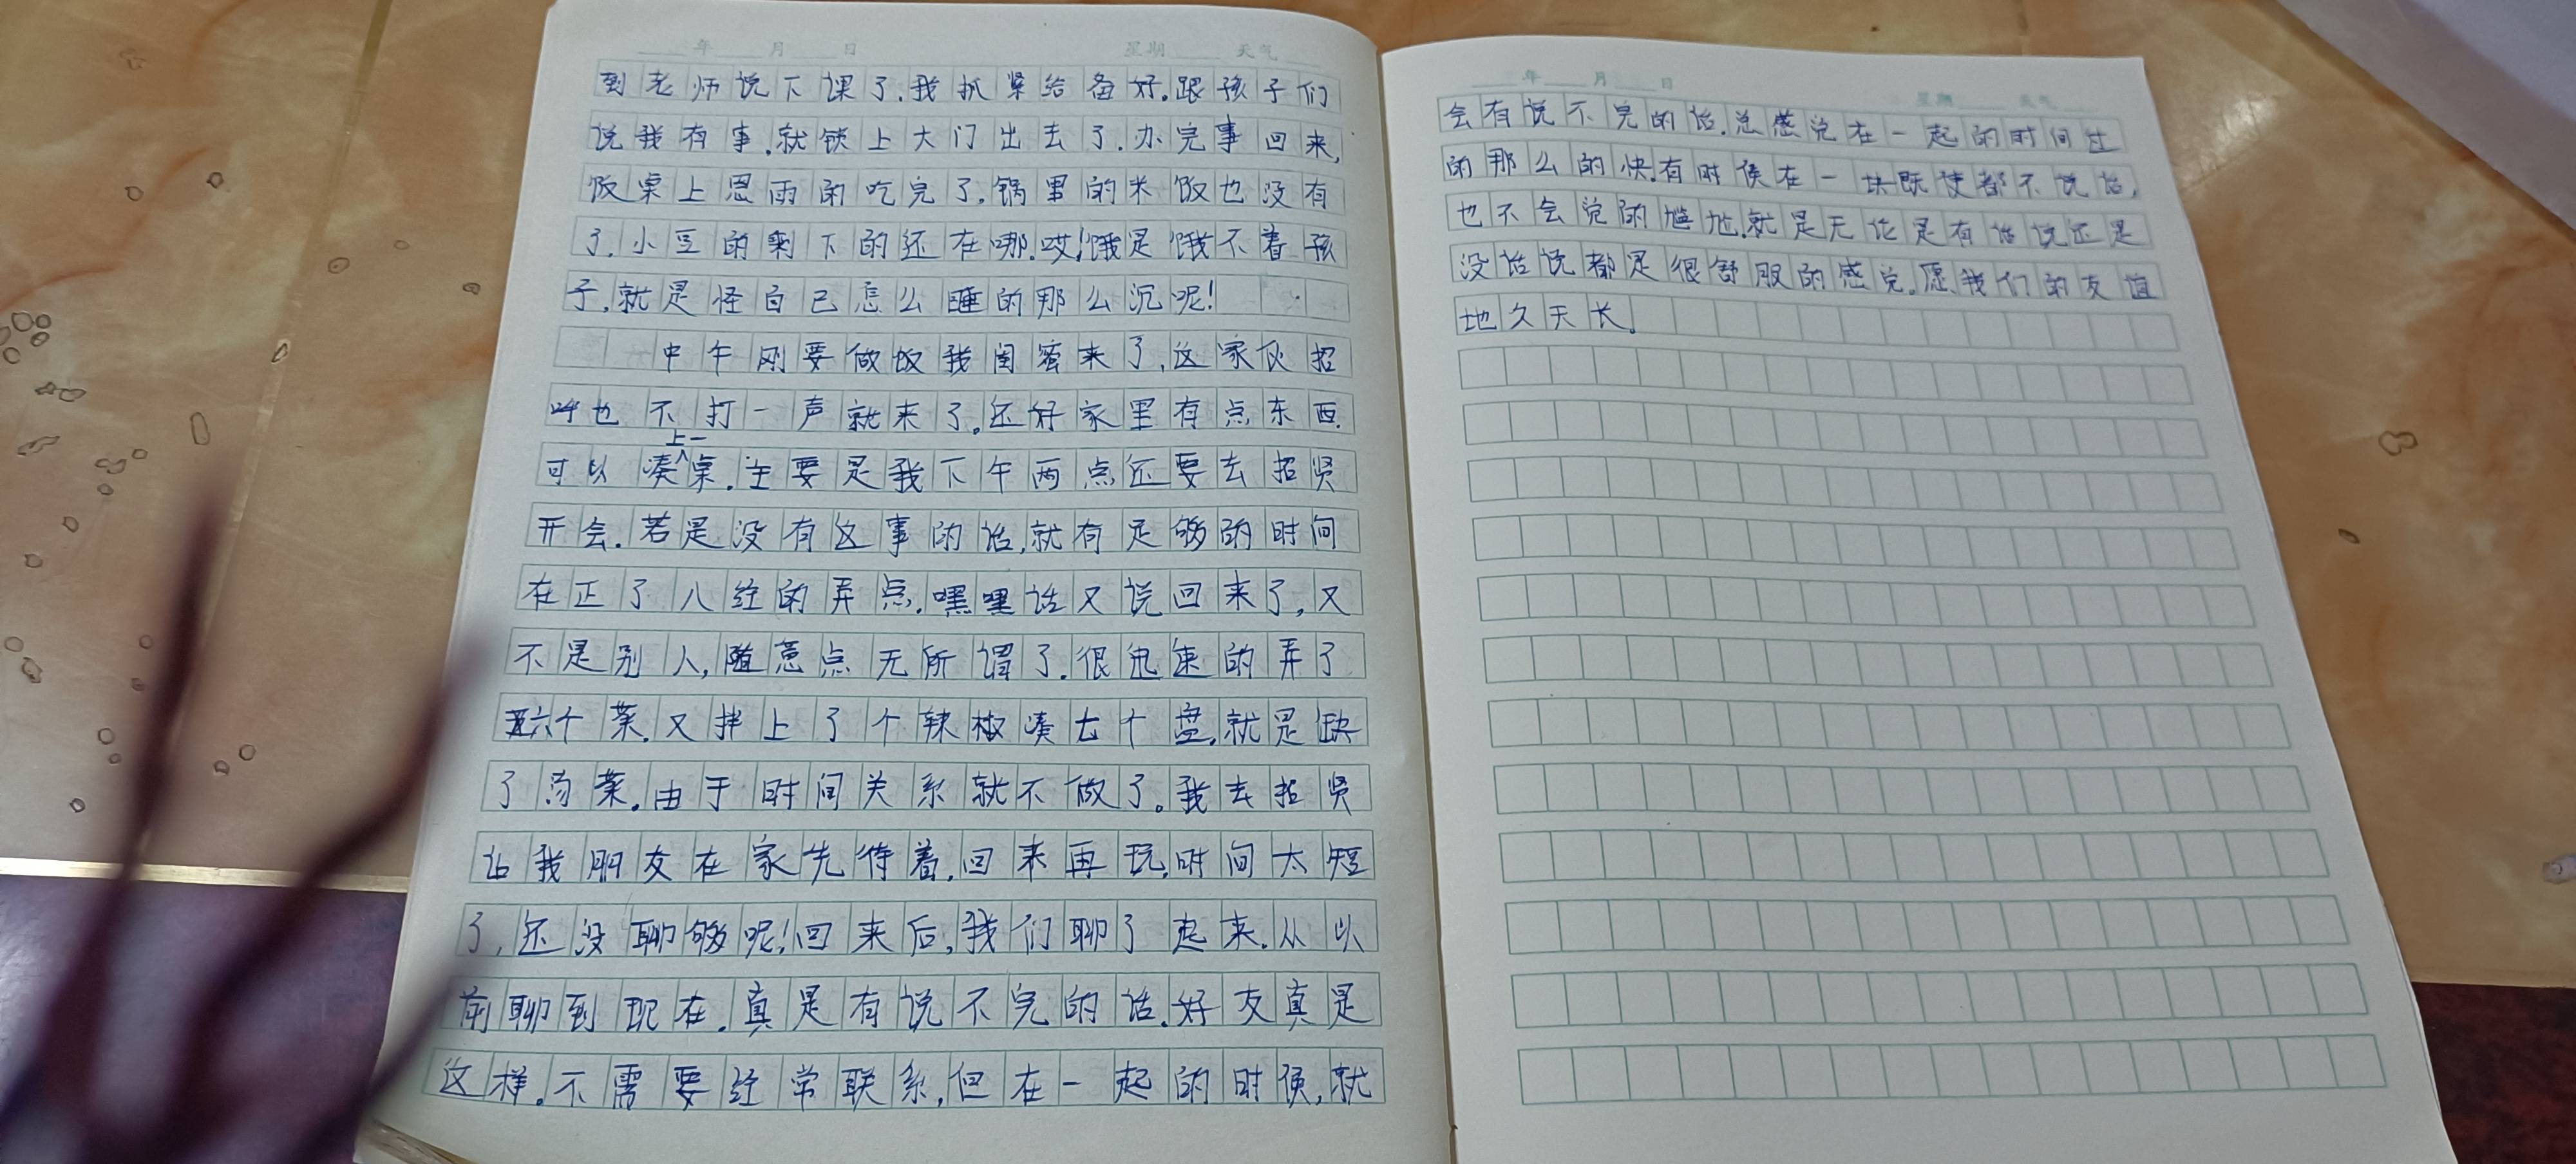 年 月 日 星期 天气
到老师说下课了.我抓紧给备好.跟孩子们
说我有事.就锁上大门出去了.办完事回来,
饭桌上恩雨的吃完了.锅里的米饭也没有
了.小豆的剩下的还在哪.哎!饿是饿不着孩
子.就是怪自己怎么睡的那么沉呢!
中午刚要做饭我闺蜜来了.这家伙招
呼也不打一声就来了。还好家里有点东西.
可以凑上一桌.主要是我下午两点还要去招贤
开会.若是没有这事的话,就有足够的时间
在正了八经的弄点.嘿嘿话又说回来了,又
不是别人,随意点无所谓了.很迅速的弄了
五六个菜.又拌上了个辣椒凑七个盘.就是缺
了汤菜.由于时间关系就不做了。我去招贤
让我朋友在家先待着.回来再玩.时间太短
了,还没聊够呢!回来后,我们聊了起来.从以
前聊到现在.真是有说不完的话.好友真是
这样。不需要经常联系,但在一起的时候,就
年 月 日 星期 天气
会有说不完的话.总感觉在一起的时间过
的那么的快.有时侯在一块既使都不说话,
也不会觉的尴尬.就是无论是有话说还是
没话说都是很舒服的感觉.愿我们的友谊
地久天长。